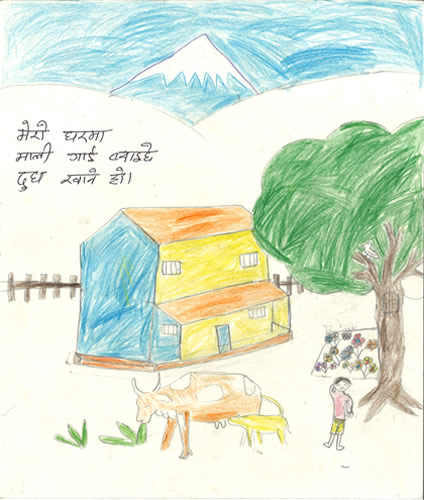 मेरो घरमा
माली गाई ब्याइछे
दुध खाने हो।